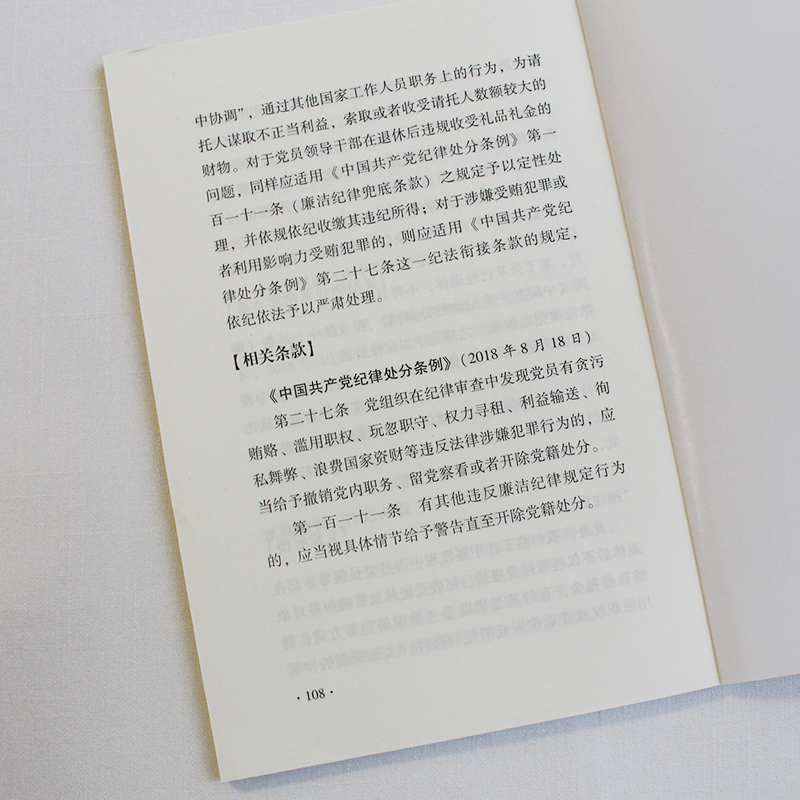 中协调”，通过其他国家工作人员职务上的行为，为请
托人谋取不正当利益，索取或者收受请托人数额较大的
财物。对于党员领导干部在退休后违规收受礼品礼金的
问题，同样应适用《中国共产党纪律处分条例》第一
百一十一条（廉洁纪律兜底条款）之规定予以定性处
理，并依规依纪收缴其违纪所得；对于涉嫌受贿犯罪或
者利用影响力受贿犯罪的，则应适用《中国共产党纪
律处分条例》第二十七条这一纪法衔接条款的规定，
依纪依法予以严肃处理。
【相关条款】
《中国共产党纪律处分条例》（2018 年 8 月 18 日）
第二十七条　党组织在纪律审查中发现党员有贪污
贿赂、滥用职权、玩忽职守、权力寻租、利益输送、徇
私舞弊、浪费国家资财等违反法律涉嫌犯罪行为的，应
当给予撤销党内职务、留党察看或者开除党籍处分。
第一百一十一条　有其他违反廉洁纪律规定行为
的，应当视具体情节给予警告直至开除党籍处分。
· 108 ·